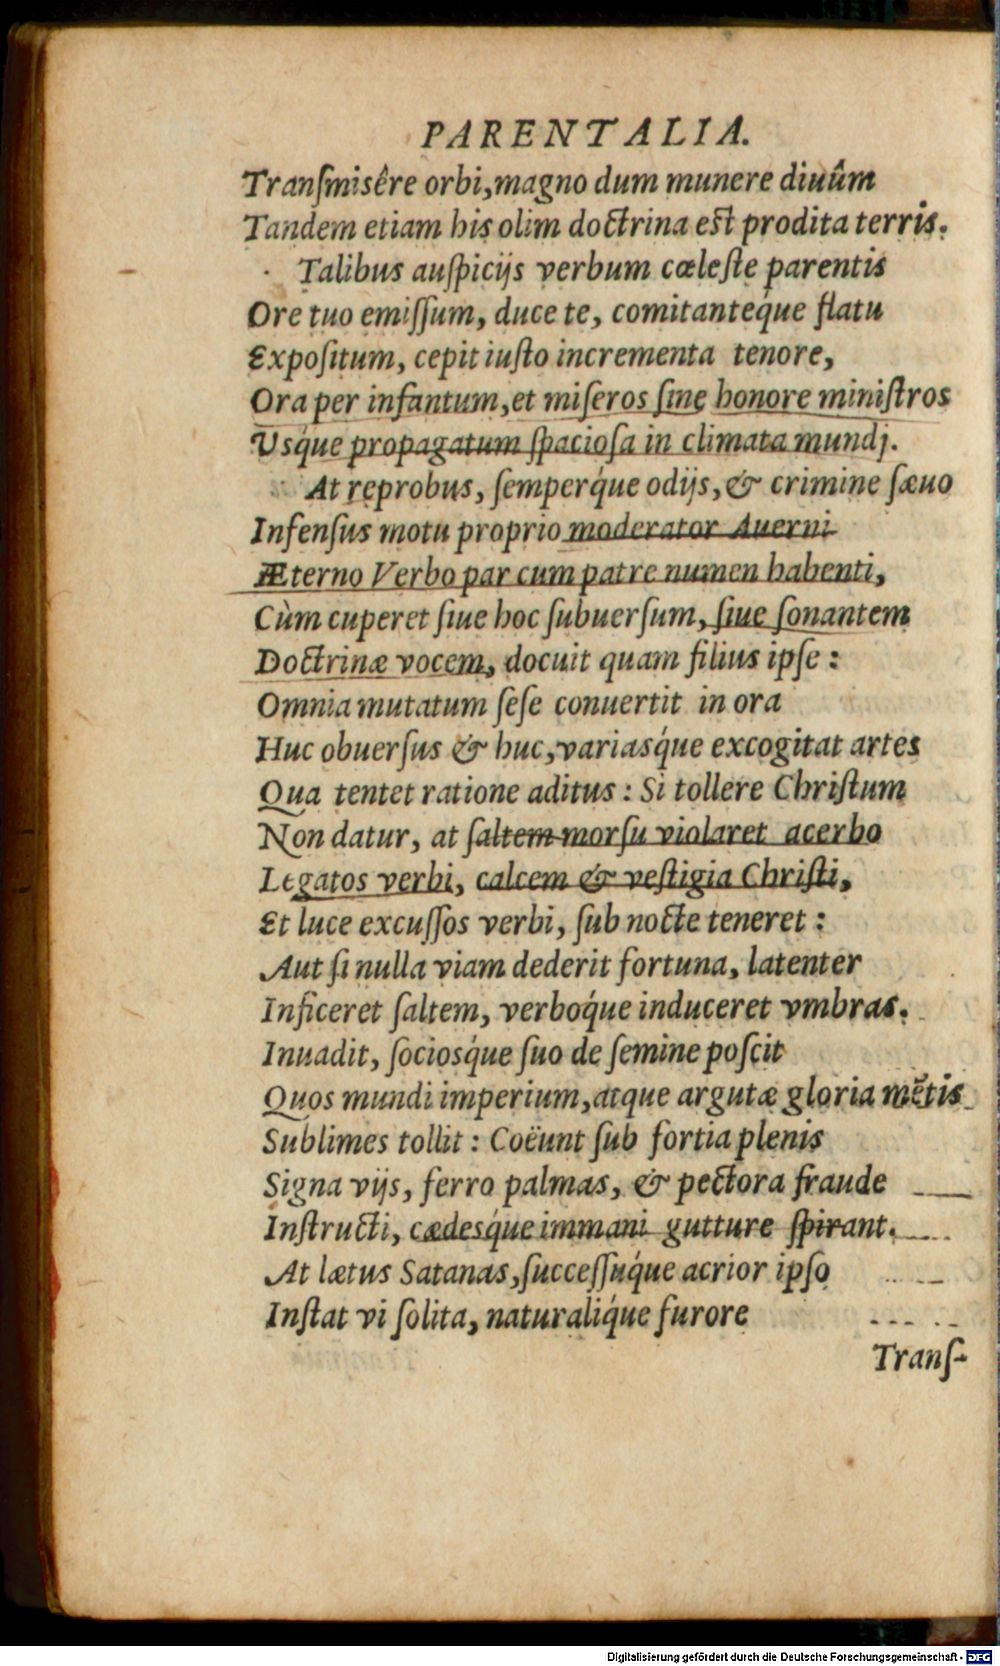 PARENTALIA.
Tranſmisêre orbi, magno dum munere diuûm
Tandem etiam his olim doctrina est prodita terris.
Talibus auſpicijs verbum cœleſte parentis
Ore tuo emiſſum, duce te, comitanteq́ue flatu
Expoſitum, cepit iuſto incrementa tenore,
Ora per infantum, et miſeros ſine honore miniſtros
Vsq́ue propagatum ſpacioſa in climata mundj.
At reprobus, ſemperq́ue odijs, & crimine ſæuo
Infenſus motu proprio moderator Auerni
Æterno Verbo par cum patre numen habenti,
Cùm cuperet ſiue hoc ſubuerſum, ſiue ſonantem
Doctrinæ vocem, docuit quam filius ipſe :
Omnia mutatum ſeſe conuertit in ora
Huc obuerſus & huc, variasq́ue excogitat artes
Qua tentet ratione aditus : Si tollere Chriſtum
Non datur, at ſaltem morſu violaret acerbo
Legatos verbi, calcem & veſtigia Chriſti,
Et luce excuſſos verbi, ſub nocte teneret :
Aut ſi nulla viam dederit fortuna, latenter
Inficeret ſaltem, verboq́ue induceret vmbras.
Inuadit, ſociosq́ue ſuo de ſemine poſcit
Quos mundi imperium, atque argutæ gloria mẽtis
Sublimes tollit : Coëunt ſub fortia plenis
Signa vijs, ferro palmas, & pectora fraude
Inſtructi, cædesq́ue immani gutture ſpirant.
At lætus Satanas, ſucceſſuq́ue acrior ipſo
Inſtat vi ſolita, naturaliq́ue furore
Tranſ-
Digitalisierung gefördert durch die Deutsche Forschungsgemeinschaft - DFG